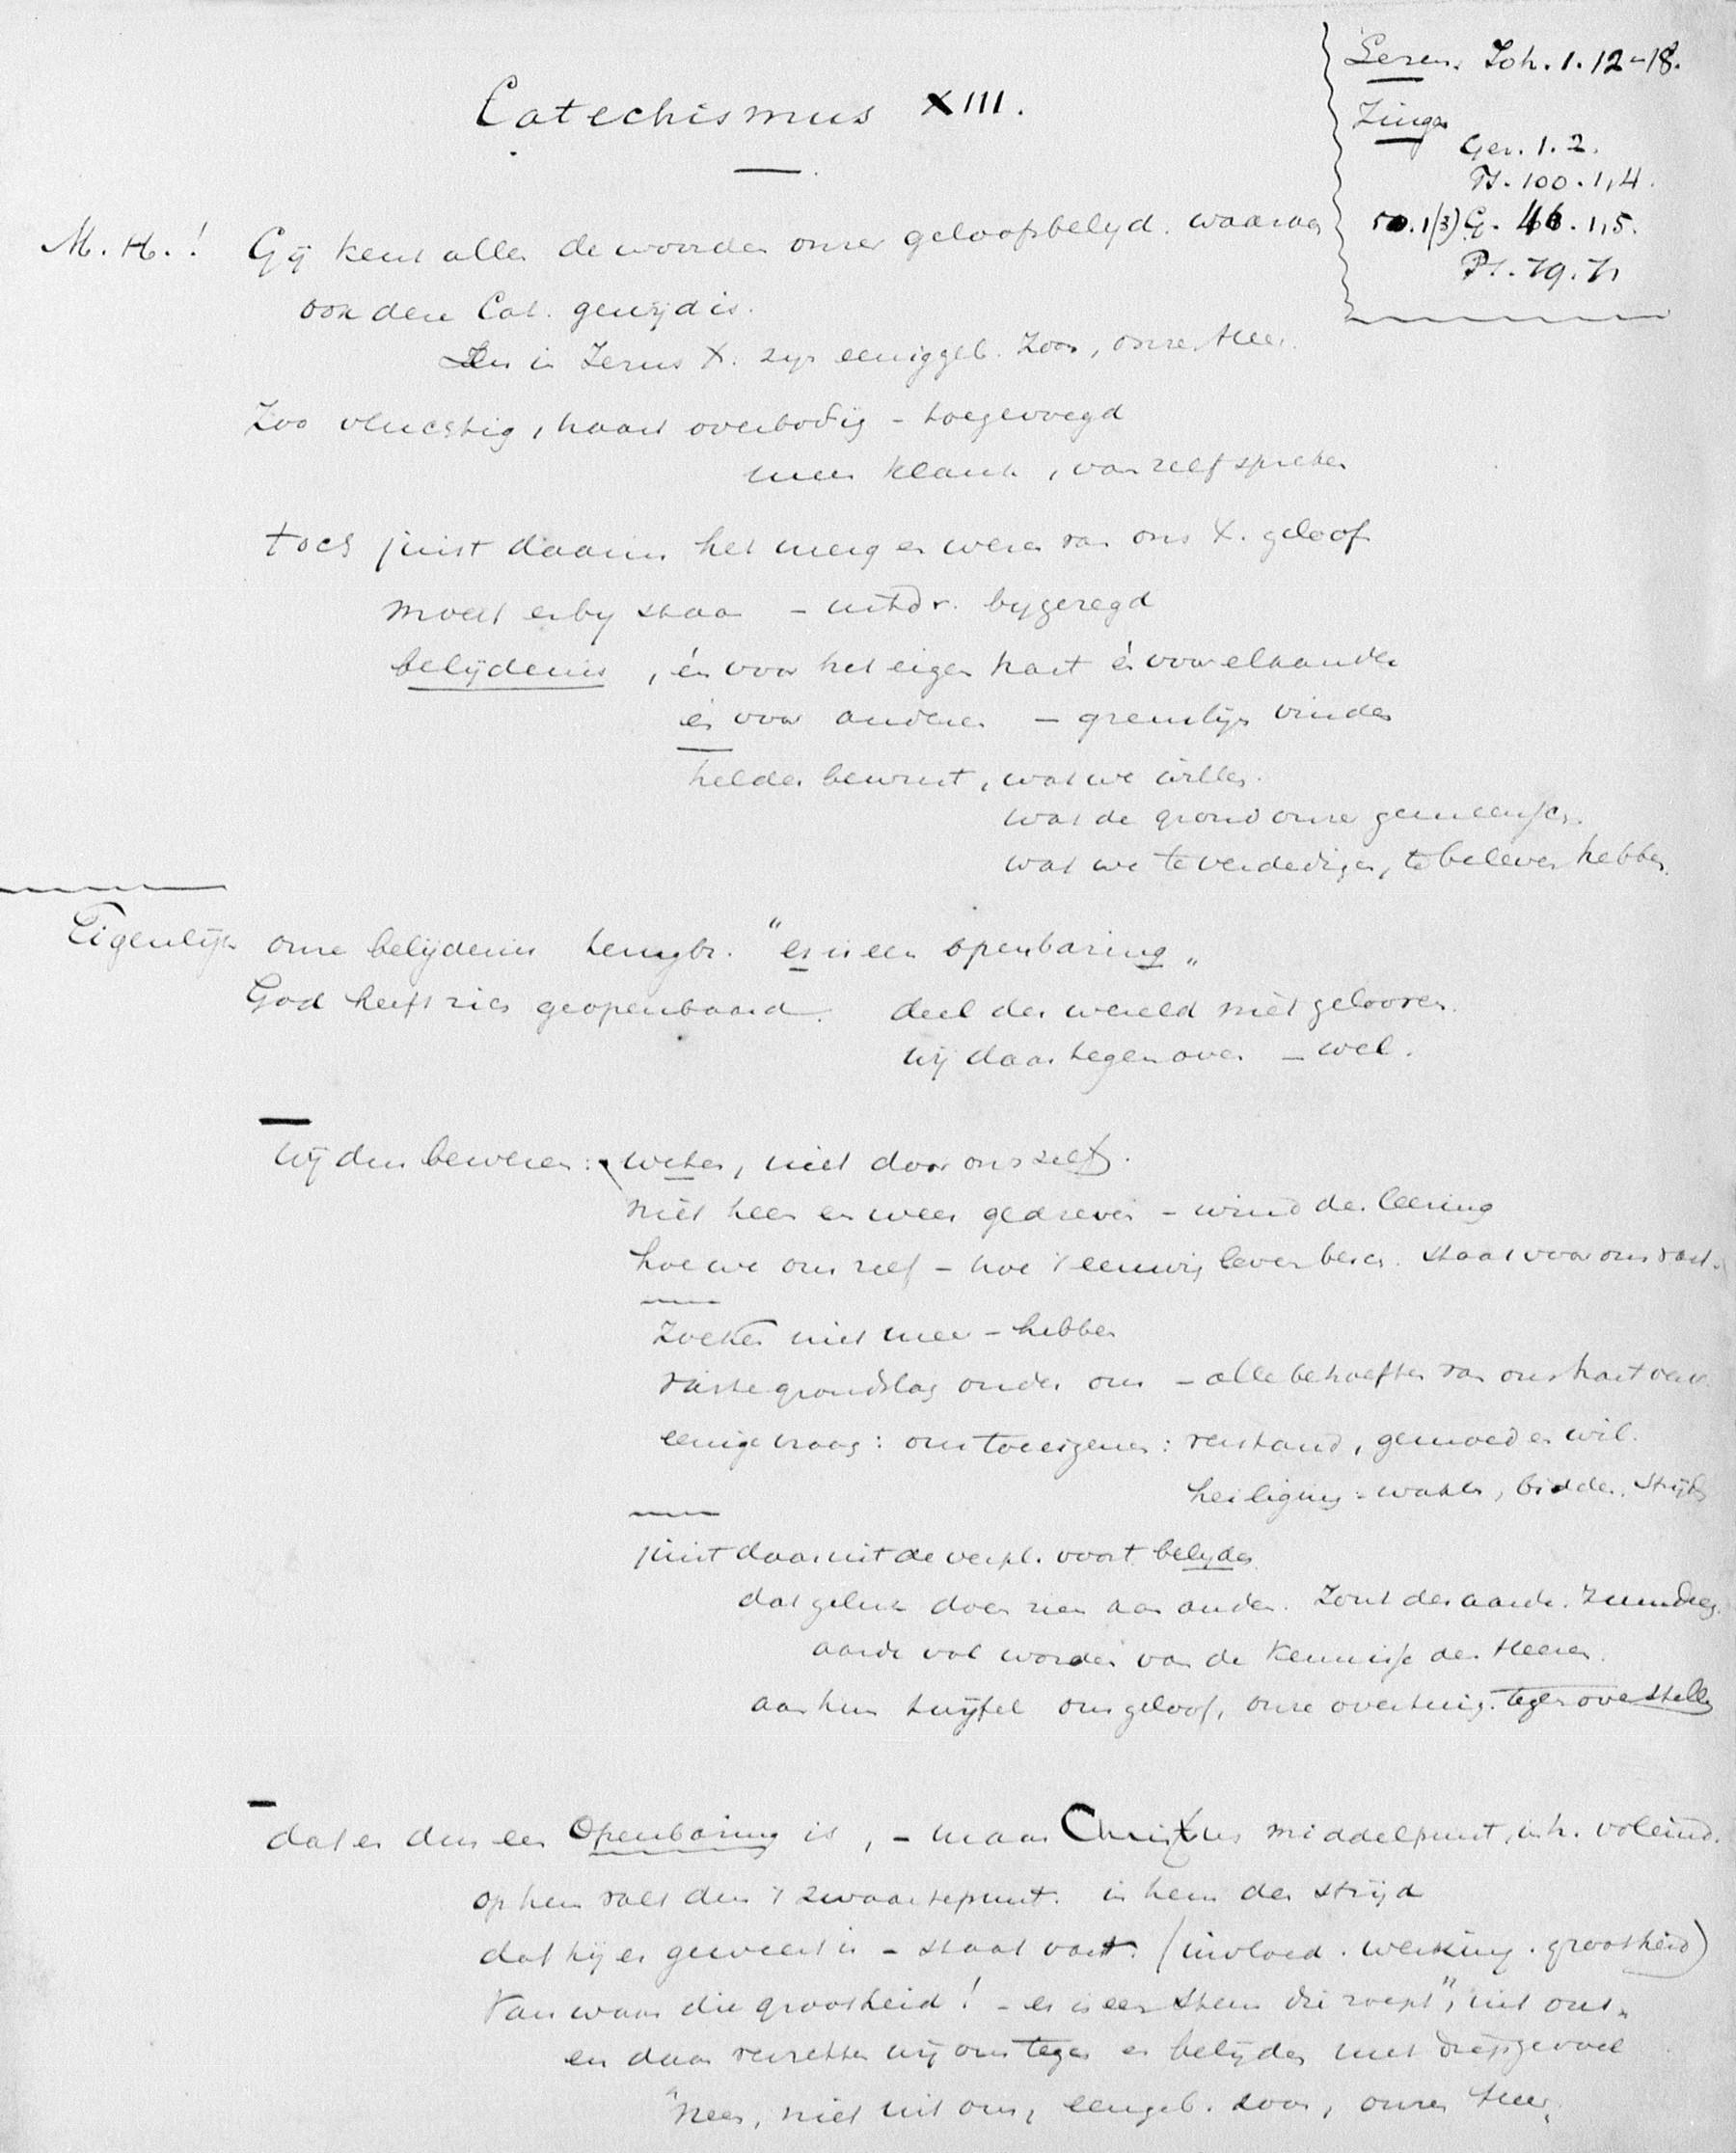 Lezen. Joh. 1. 12-18.
Catechismus XIII.
Zingen
Gez. 1. 2.
Ps. 100. 1,4.
50. 1(3) G. 46. 1,5.
Ps. 79. 7
M. H.! Gij kent allen de woorden onzer geloofsbelijd. waaraan
ook den Cat. gewijd is.
En in Jezus X. zijn eeniggeb. Zoon, onze Heer.
Zoo vluchtig, haast overbodig - toegevoegd
meer klank, van zelf spreken
toch juist daarin het merg en wezen van ons X. geloof
moest erbij staan - uitdr. bijgezegd
belijdenis, én voor het eigen hart én voor elkander
én voor anderen - grenslijn vinden
helder bewust, wat we willen.
wat de grond onzer gemeensch.
wat we te verdedigen, te beleven hebben.
Eigenlijk onze belijdenis terugbr. "er is een openbaring"
God heeft zich geopenbaard. deel der wereld niet gelooven.
wij daar tegenover - wel.
Wij dus beweren: weten, niet door ons zelf.
niet heen en weer gedreven - wind der leering
hoe we ons zelf - hoe 't eeuwig leven besch. staat voor ons vast.
Zoeken niet meer - hebben
vaste grondslag onder ons - alle behoeften van ons hart verv.
eenige vraag: ons toeeigenen: verstand, gemoed en wil.
heiliging: waken, bidden, strijden
juist daaruit de verpl. voort belijden
dat geluk doen zien aan ander. Zout der aarde. Zuurdeeg.
aarde vol worden van de Kennisse des Heeren.
aan hun twijfel ons geloof, onze overtuig. tegenoverstellen
dat er dus een Openbaring is, - maar Christus middelpunt, in h. voleind.
op hem valt dus 't zwaartepunt. in hem de strijd
dat hij er geweest is - staat vast. (invloed. werking. grootheid)
Van waar die grootheid! - er is een stem die roept "uit ons"
en daar verzetten wij ons tegen en belijden met diep gevoel
"Neen, niet uit ons, eengeb. zoon, onzen Heer"